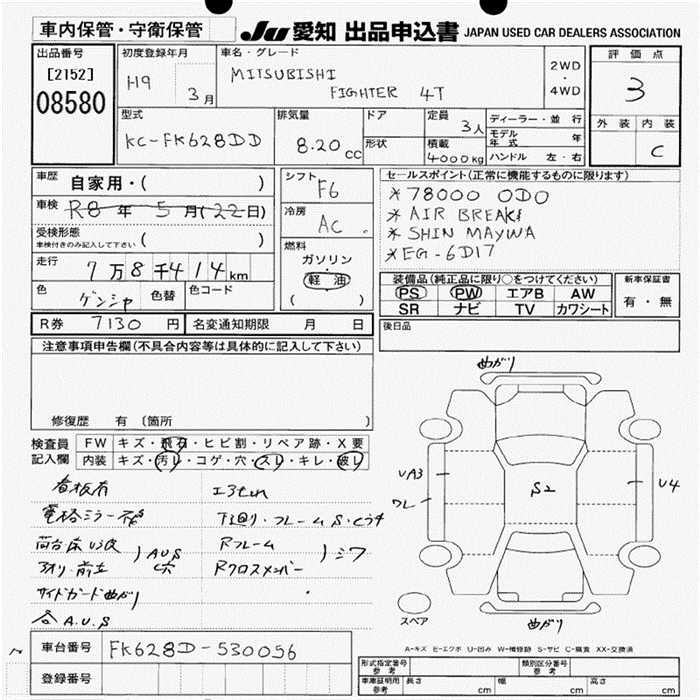 車内保管・守衛保管
Ju 愛知 出品申込書 JAPAN USED CAR DEALERS ASSOCIATION
出品番号
[2152]
08580
初度登録年月
H9
3月
車名・グレード
MITSUBISHI
FIGHTER 4T
2WD
・
4WD
評価点
3
外装 内装
C
型式
KC-FK628DD
排気量
8.20cc
ドア
形状
定員
3人
積載
4000kg
ディーラー・並行
モデル年式 年
ハンドル 左・右
車歴 自家用・( )
車検 R8年5月(22日)
受検形態
車検付きのみ記入して下さい ( )
走行 7万8千414km
色 ゲンシャ 色替 色コード
R券 7130円 名変通知期限 月 日
シフト F6
冷房 AC
燃料
ガソリン
軽油
( )
セールスポイント(正常に機能するものに限ります)
*78000 ODO
*AIR BREAK
*SHIN MAYWA
*EG-6D17
装備品(純正品に限り○をつけてください)
PS PW エアB AW
SR ナビ TV カワシート
新車保証書
有・無
後日品
注意事項申告欄(不具合内容等は具体的に記入して下さい)
修復歴 有 〔箇所 〕
検査員記入欄
FW キズ・飛石・ヒビ割・リペア跡・X要
内装 キズ・汚れ・コゲ・穴・スレ・キレ・破レ
看板有
電格ミラー不良
荷台床
アオリ・前立
AUS
サイドガード曲がり
各A.U.S
下廻り・フレームS・
Rフレーム
Rクロスメンバー
曲がり
UA3
ワレ
S2
U4
曲がり
スペア
A-キズ E-エクボ U-凹み W-補修跡 S-サビ C-腐食 XX-交換済
車台番号 FK628D-530056
登録番号
型式指定番号 参考
類別区分番号 参考
車庫証明用 参考 長さ cm 幅 cm 高さ cm